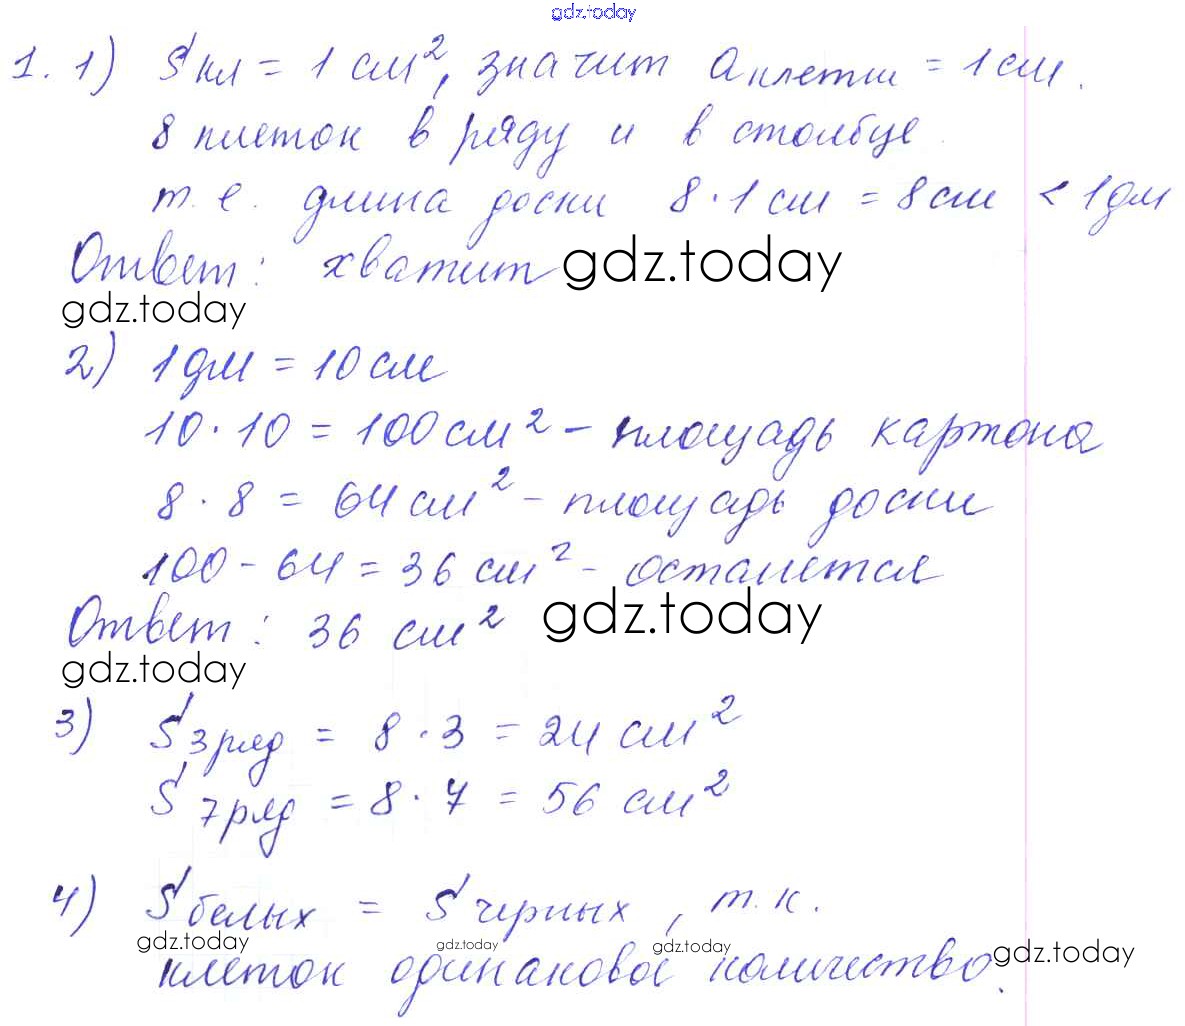 gdz.today
1. 1) Sкл = 1 см², значит aклетки = 1 см.
8 клеток в ряду и в столбце.
т. е. длина доски 8 · 1 см = 8 см < 1 дм
Ответ: хватит gdz.today
gdz.today
2) 1 дм = 10 см
10 · 10 = 100 см² – площадь картона
8 · 8 = 64 см² – площадь доски
100 – 64 = 36 см² – останется
Ответ: 36 см² gdz.today
gdz.today
3) S3 ряд = 8 · 3 = 24 см²
S7 ряд = 8 · 7 = 56 см²
4) Sбелых = Sчерных, т. к.
gdz.today gdz.today gdz.today gdz.today
клеток одинаковое количество.